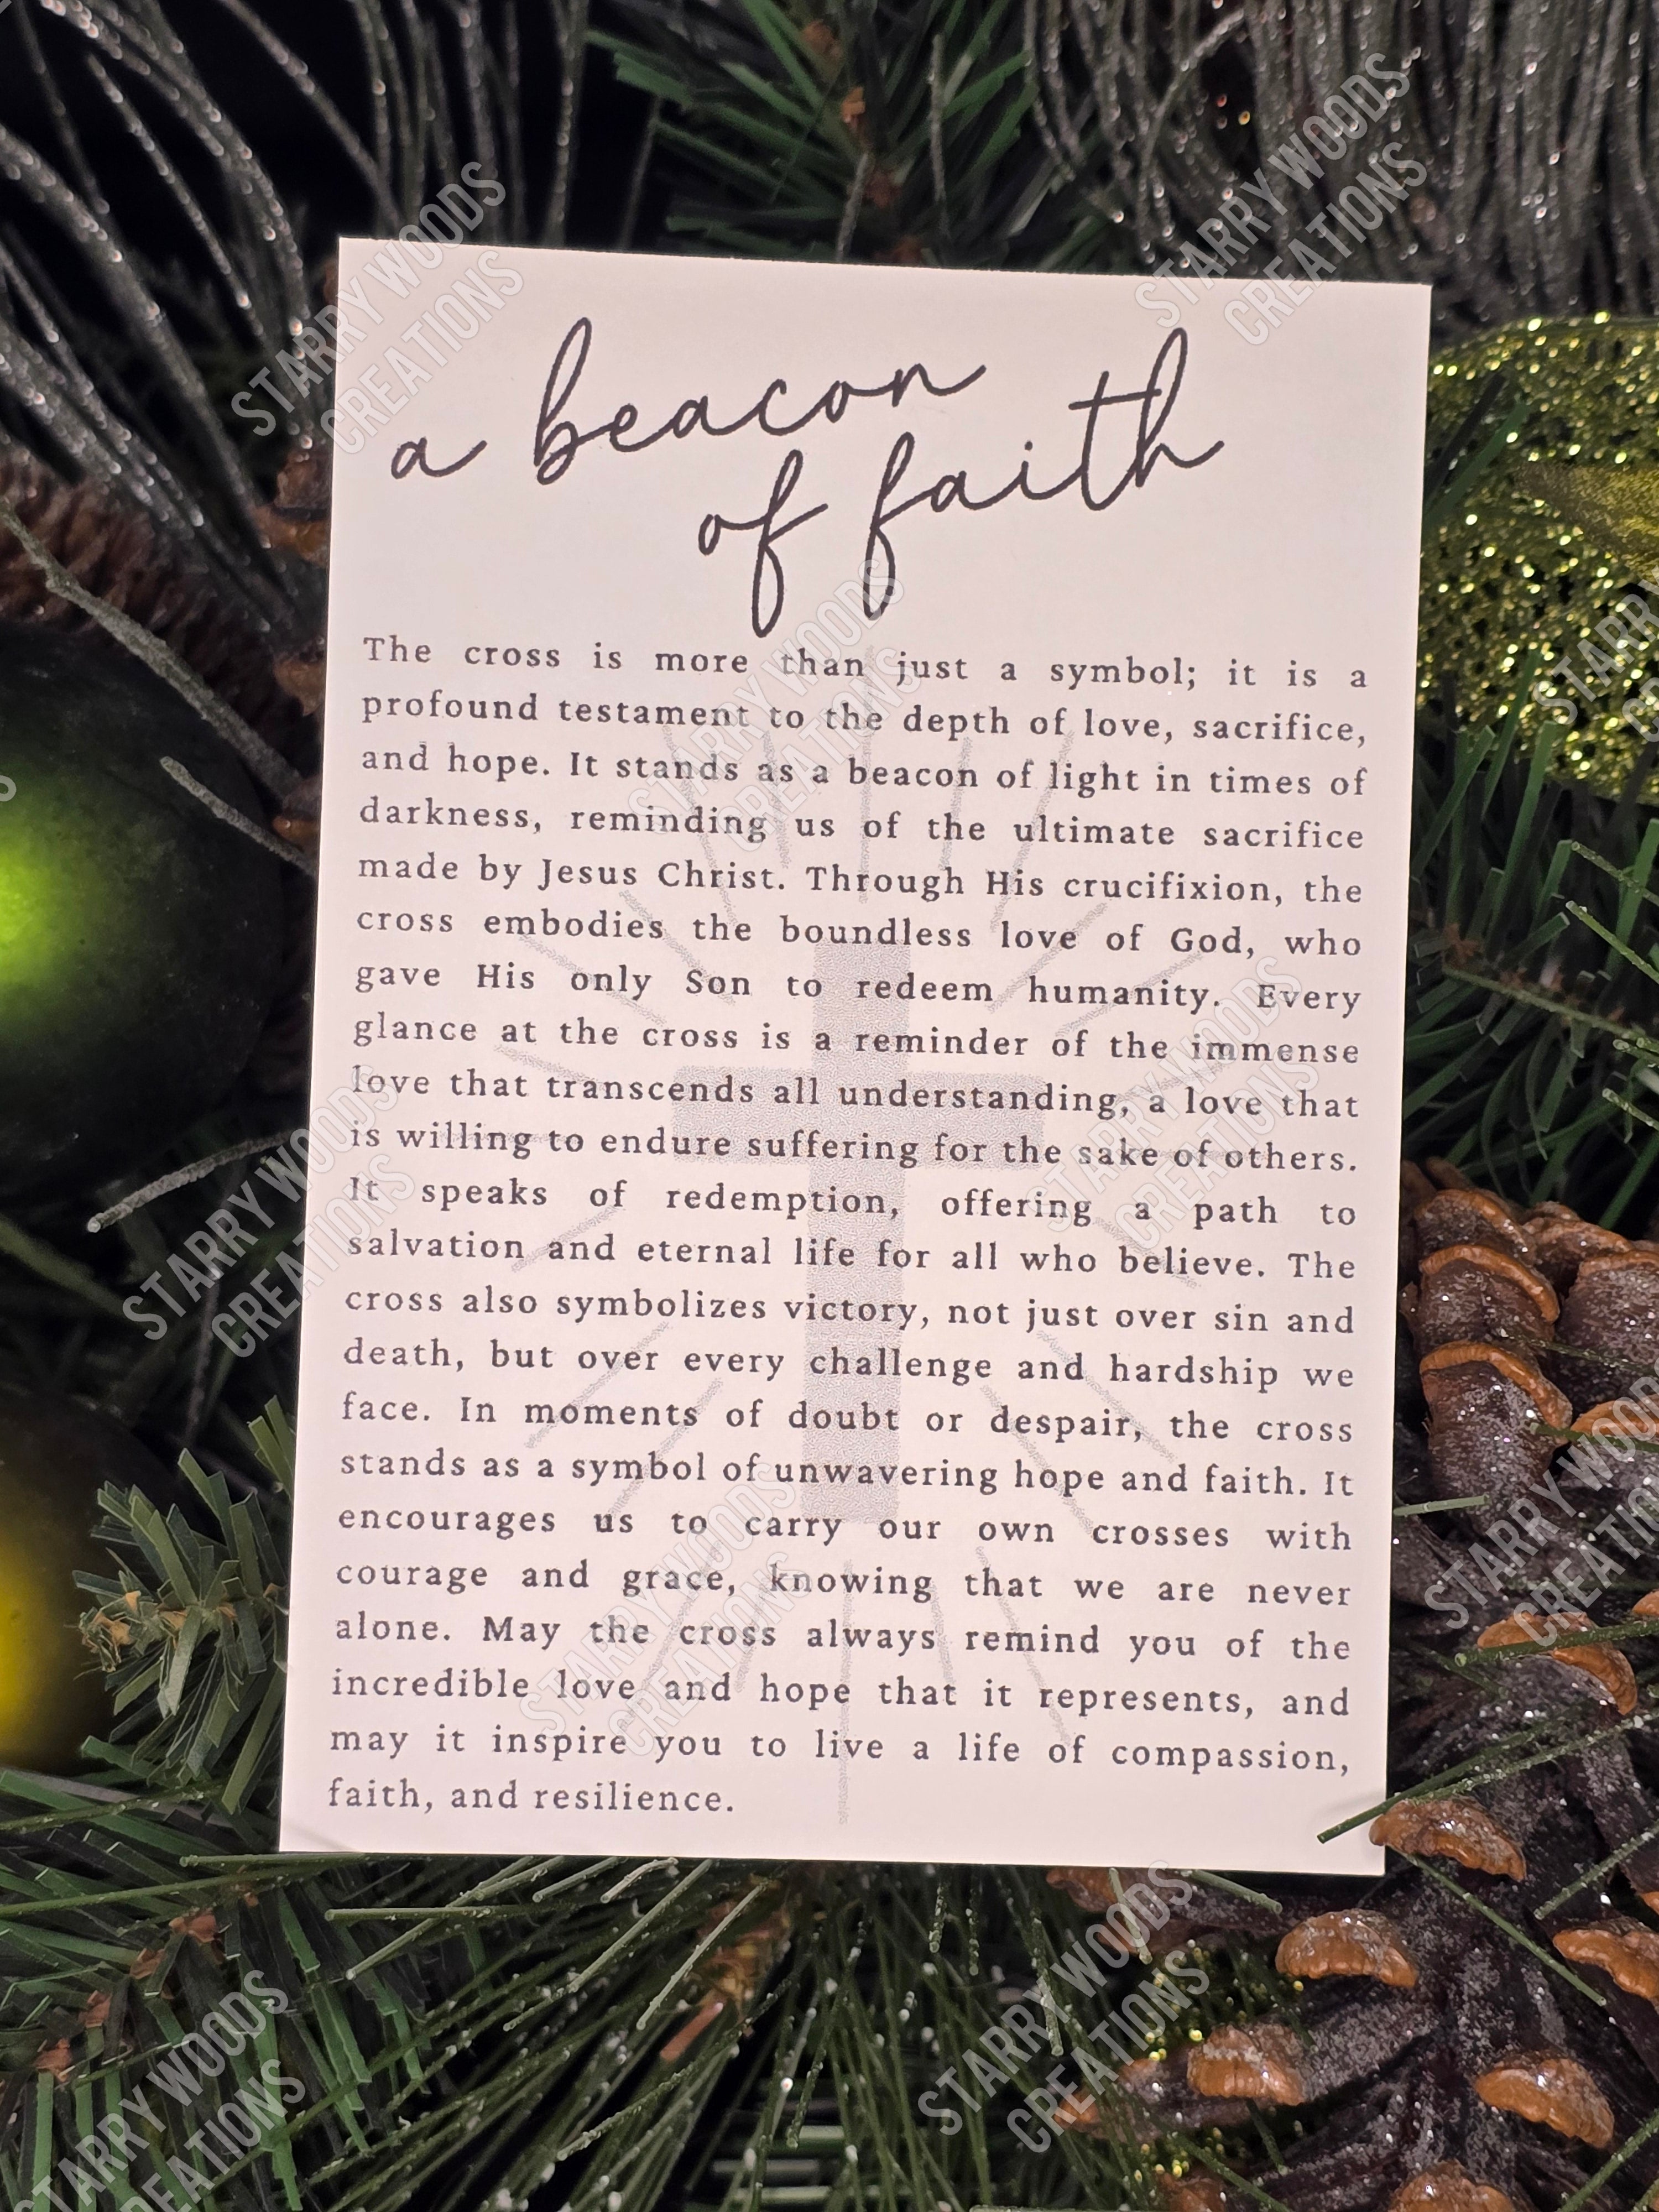 a beacon
of faith
The cross is more than just a symbol; it is a
profound testament to the depth of love, sacrifice,
and hope. It stands as a beacon of light in times of
darkness, reminding us of the ultimate sacrifice
made by Jesus Christ. Through His crucifixion, the
cross embodies the boundless love of God, who
gave His only Son to redeem humanity. Every
glance at the cross is a reminder of the immense
love that transcends all understanding, a love that
is willing to endure suffering for the sake of others.
It speaks of redemption, offering a path to
salvation and eternal life for all who believe. The
cross also symbolizes victory, not just over sin and
death, but over every challenge and hardship we
face. In moments of doubt or despair, the cross
stands as a symbol of unwavering hope and faith. It
encourages us to carry our own crosses with
courage and grace, knowing that we are never
alone. May the cross always remind you of the
incredible love and hope that it represents, and
may it inspire you to live a life of compassion,
faith, and resilience.
STARRY WOODS
CREATIONS
STARRY WOODS
CREATIONS
STARRY WOODS
CREATIONS
STARRY WOODS
CREATIONS
STARRY WOODS
CREATIONS
STARRY WOODS
CREATIONS
STARRY WOODS
CREATIONS
STARRY WOODS
CREATIONS
STARRY WOODS
CREATIONS
STARRY